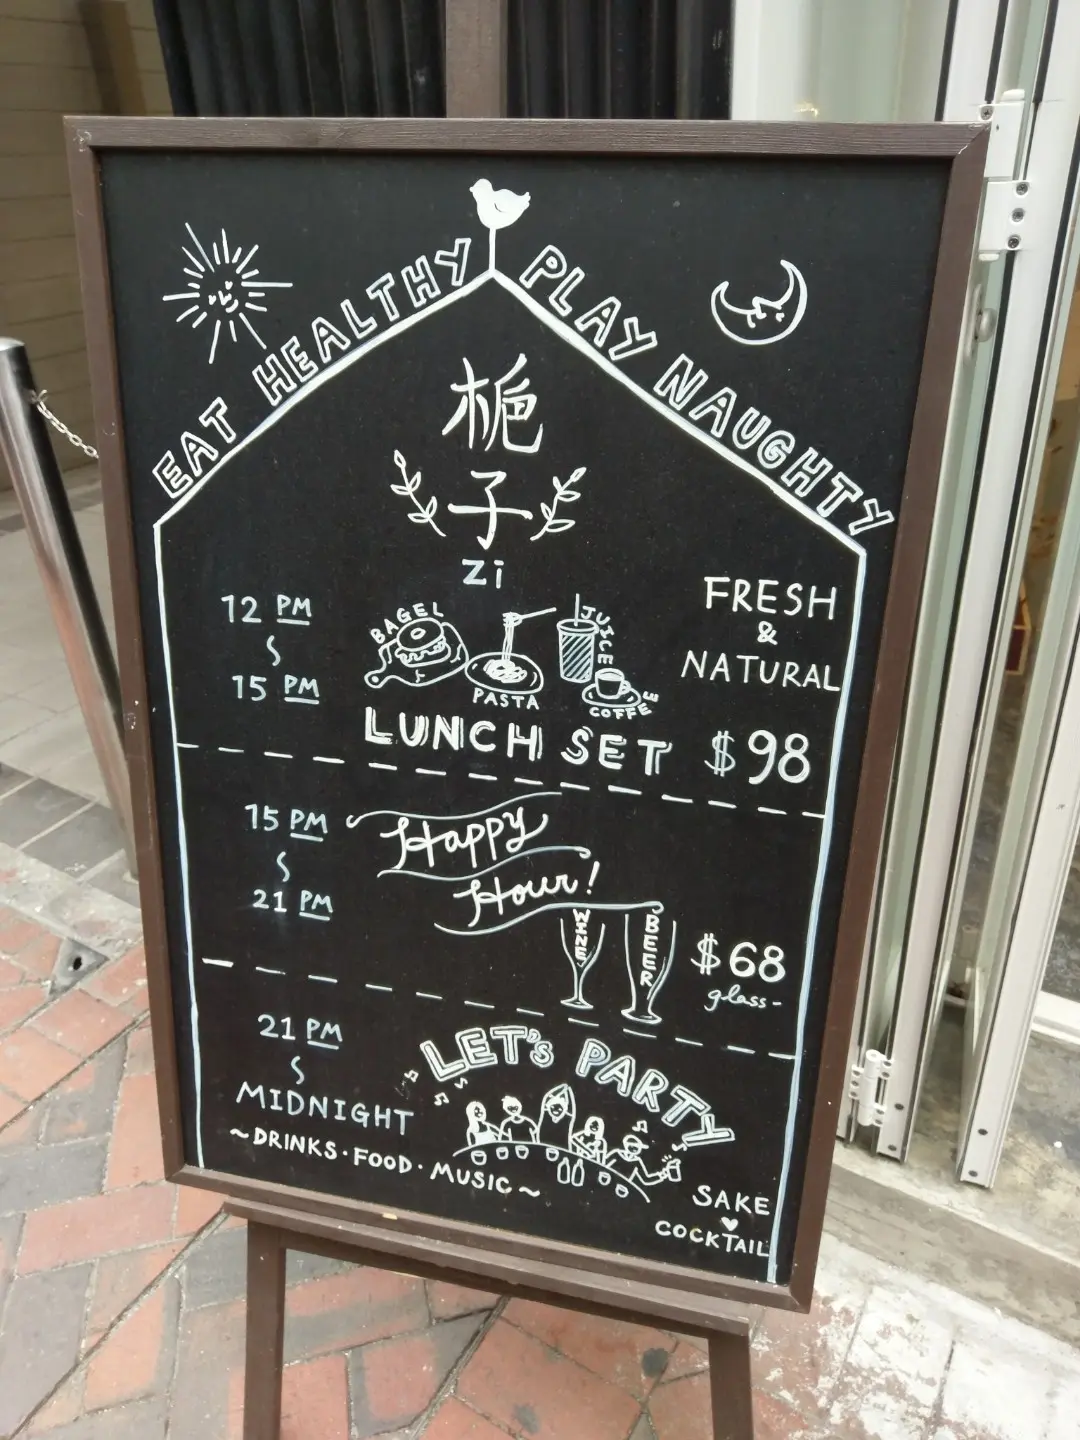 EAT HEALTHY PLAY NAUGHTY
栀
子
Zi
12 PM
15 PM
BAGEL
PASTA
JUICE
COFFEE
FRESH
&
NATURAL
LUNCH SET $98
15 PM
21 PM
Happy
Hour!
WINE
BEER
$68
glass-
21 PM
MIDNIGHT
LET'S PARTY
~DRINKS·FOOD·MUSIC~
SAKE
COCKTAIL